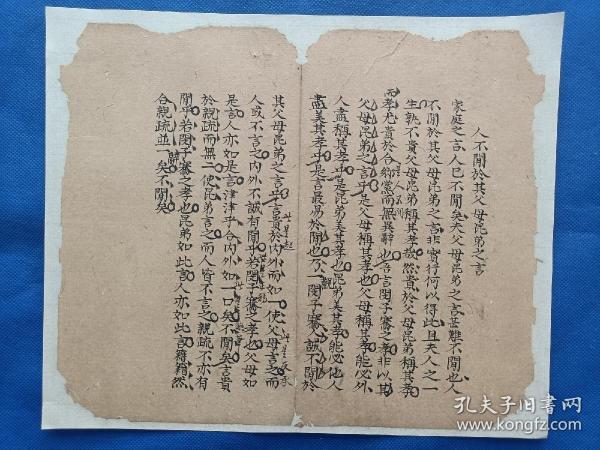 人不間於其父母昆弟之言
家庭之言人已不間矣夫父母昆弟之言甚難不間也人
不間於其父母昆弟之言非實行何以得此且夫人之一
生孰不貴父母昆弟稱其孝敬然貴於父母昆弟稱其孝
而孝尤貴於合鄉黨而無異辭也吾言閔子騫之孝非以其
父母昆弟之言乎是父母稱其孝也父母稱其孝能必外
人盡稱其孝乎是昆弟美其孝也昆弟美其孝能必他人
盡美其孝乎是言最易於間也乃一觀閔子騫人誠不間於
其父母昆弟之言乎言貴於內外而如一使父母言之而
人或不言之內外不誠有間乎若閔子騫之孝也父母如
是言人亦如是言津津乎合內外如一口矣不間矣言貴
於親疏而無二使昆弟言之而人皆不言之親疏不亦有
間乎若閔子騫之孝也昆弟如此言人亦如此言籍籍然
合親疏並一辭矣不間矣
孔夫子旧书网